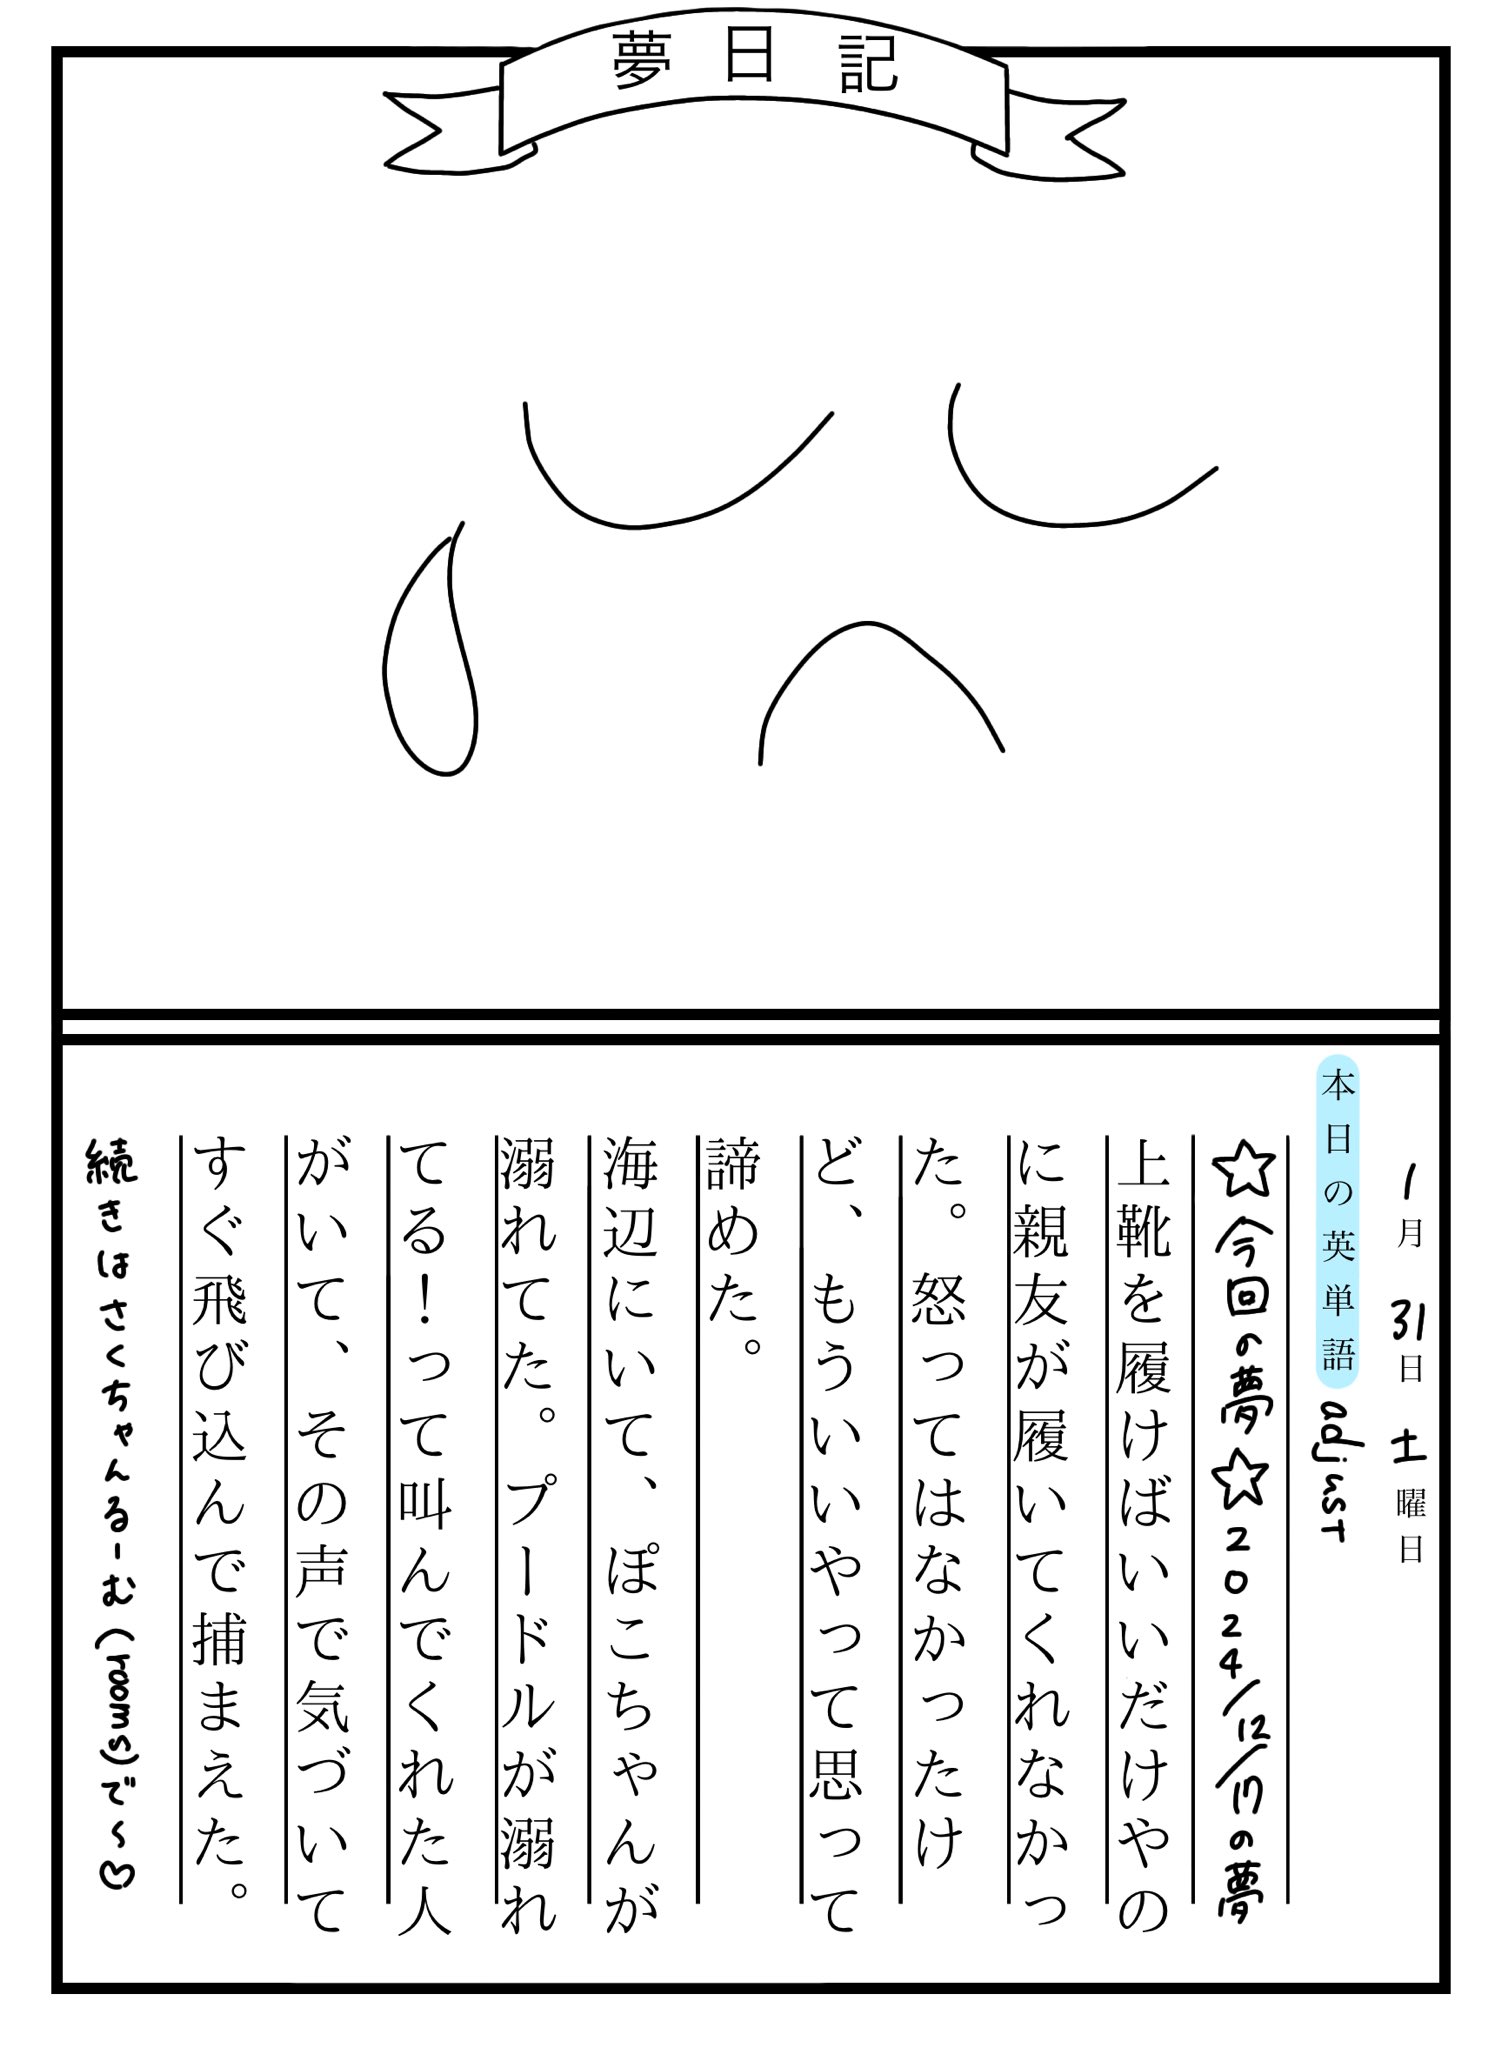 夢日記
1月31日土曜日
本日の英単語 adjust
☆今回の夢☆2024/12/17の夢
上靴を履けばいいだけやの
に親友が履いてくれなかっ
た。怒ってはなかったけ
ど、もういいやって思って
諦めた。
海辺にいて、ぽこちゃんが
溺れてた。プードルが溺れ
てる！って叫んでくれた人
がいて、その声で気づいて
すぐ飛び込んで捕まえた。
続きはさくちゃんるーむ(rooms)で〜♡